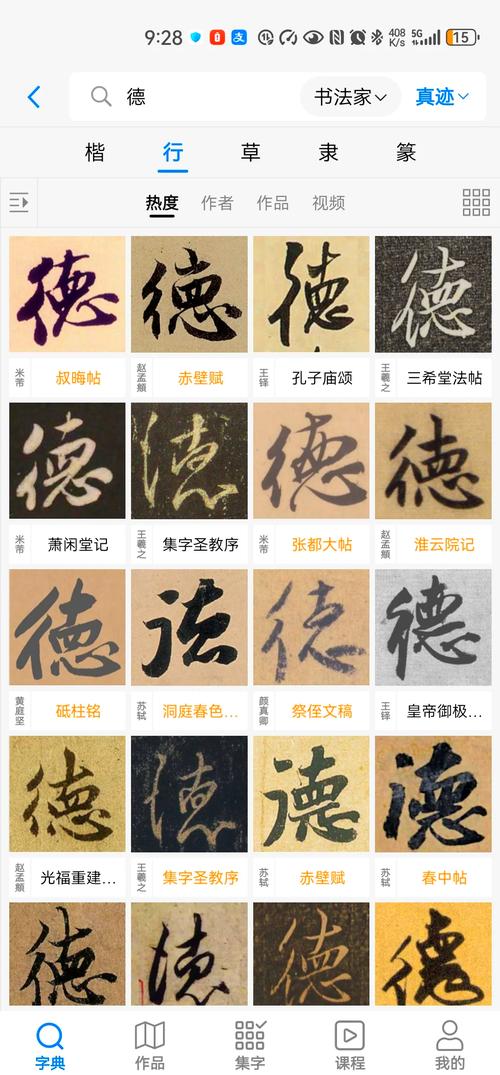 9:28 408 K/s 5G 15
德 书法家 真迹
楷 行 草 隶 篆
热度 作者 作品 视频
德 德 德 德
米芾 叔晦帖 赵孟頫 赤壁赋 王铎 孔子庙颂 王羲之 三希堂法帖
德 德 德 德
米芾 萧闲堂记 王羲之 集字圣教序 米芾 张都大帖 赵孟頫 淮云院记
德 德 德 德
黄庭坚 砥柱铭 苏轼 洞庭春色... 颜真卿 祭侄文稿 王铎 皇帝御极...
德 德 德 德
赵孟頫 光福重建... 王羲之 集字圣教序 苏轼 赤壁赋 苏轼 春中帖
德 德 德 德
字典 作品 集字 课程 我的